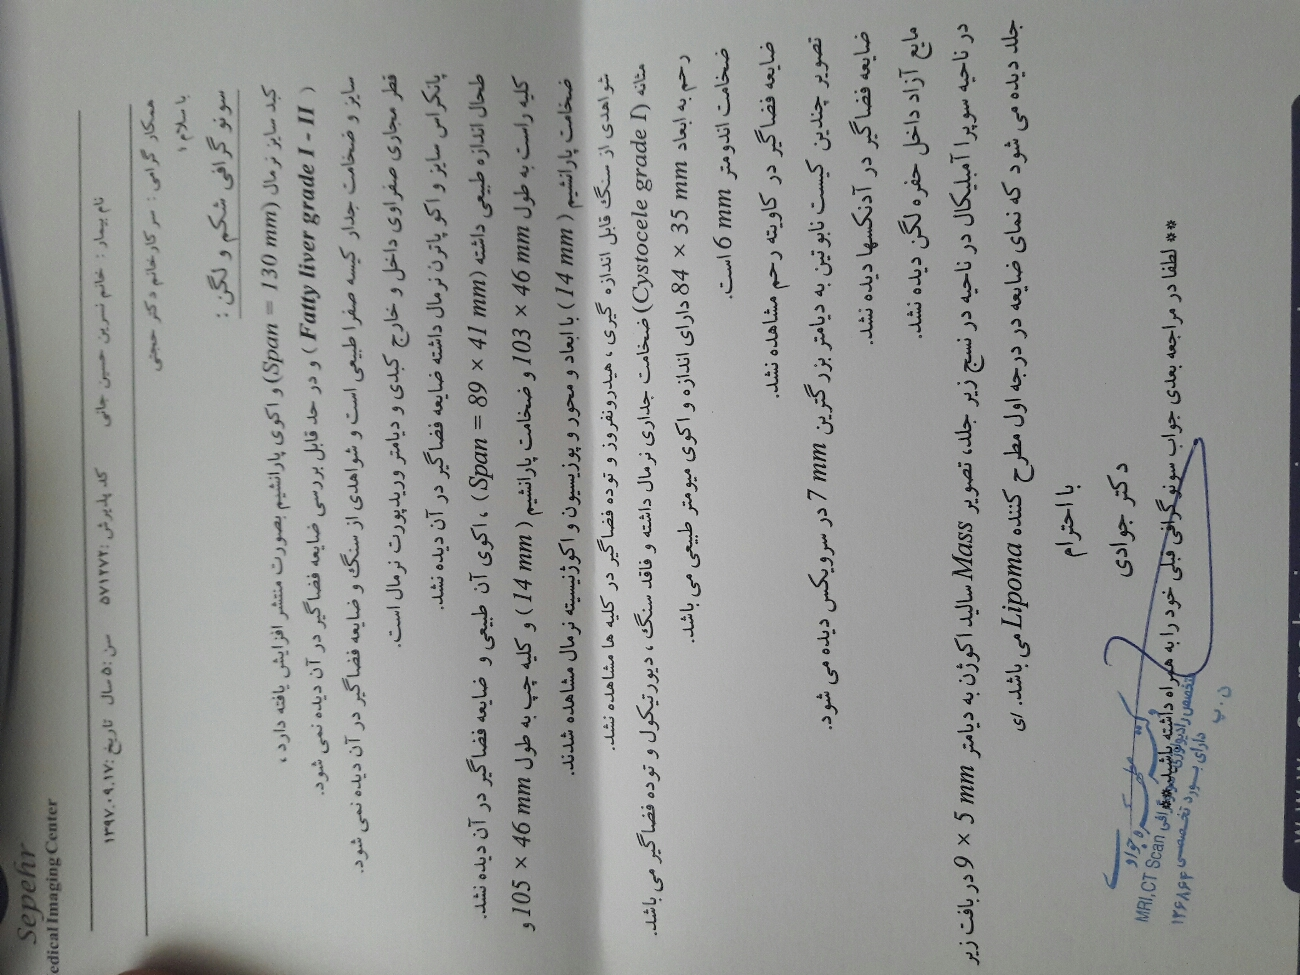 Sepehr
edical Imaging Center
نام بیمار : خانم نسرین حسین جانی کد پذیرش : ۵۷۱۲۷۲ سن : ۵۰ سال تاریخ : ۱۳۹۷.۰۹.۱۷
همکار گرامی : سرکار خانم دکتر حجتی
با سلام ؛
سونوگرافی شکم و لگن :
کبد سایز نرمال (Span = 130 mm) و اکوی پارانشیم بصورت منتشر افزایش یافته دارد،
( Fatty liver grade I - II ) و در حد قابل بررسی ضایعه فضاگیر در آن دیده نمی شود.
سایز و ضخامت جدار کیسه صفرا طبیعی است و شواهدی از سنگ و ضایعه فضاگیر در آن دیده نمی شود.
قطر مجاری صفراوی داخل و خارج کبدی و دیامتر ورید پورت نرمال است.
پانکراس سایز و اکو پاترن نرمال داشته ضایعه فضاگیر در آن دیده نشد.
طحال اندازه طبیعی داشته (Span = 89 × 41 mm) ، اکوی آن طبیعی و ضایعه فضاگیر در آن دیده نشد.
کلیه راست به طول 103 × 46 mm و ضخامت پارانشیم ( 14 mm ) و کلیه چپ به طول 105 × 46 mm و
ضخامت پارانشیم ( 14 mm ) با ابعاد و محور و پوزیسیون و اکوژنیسیته نرمال مشاهده شدند.
شواهدی از سنگ قابل اندازه گیری ، هیدرونفروز و توده فضاگیر در کلیه ها مشاهده نشد.
مثانه (Cystocele grade I) ضخامت جداری نرمال داشته و فاقد سنگ ، دیورتیکول و توده فضاگیر می باشد.
رحم به ابعاد 84 × 35 mm دارای اندازه و اکوی میومتر طبیعی می باشد.
ضخامت اندومتر 6 mm است.
ضایعه فضاگیر در کاویته رحم مشاهده نشد.
تصویر چندین کیست نابوتین به دیامتر بزرگترین 7 mm در سرویکس دیده می شود.
ضایعه فضاگیر در آدنکسها دیده نشد.
مایع آزاد داخل حفره لگن دیده نشد.
در ناحیه سوپرا آمبیلیکال در ناحیه در نسج زیر جلد، تصویر Mass سالید اکوژن به دیامتر 9 × 5 mm در بافت زیر
جلد دیده می شود که نمای ضایعه در درجه اول مطرح کننده Lipoma می باشد. /ی
با احترام
دکتر جوادی
** لطفا در مراجعه بعدی جواب سونوگرافی قبلی خود را به همراه داشته باشید **
MRI,CT Scan
دارای بورد تخصصی
۱۲۶۸۶۴
ن . ب